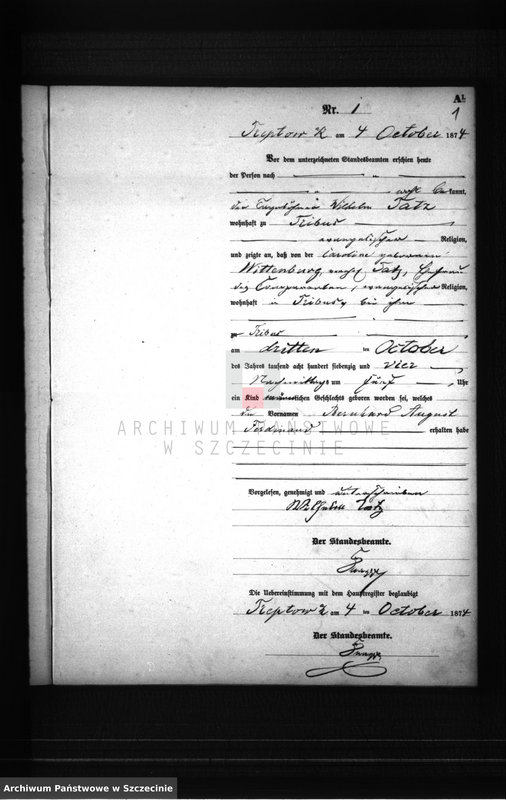 A1
1
Nr. 1
Treptow a/R am 4 October 1874
Vor dem unterzeichneten Standesbeamten erschien heute
der Person nach
wohl bekannt,
der Wilhelm Tatz
wohnhaft zu Tribus
evangelischer Religion,
und zeigte an, daß von der Caroline geborenen
Wittenburg, Tatz, Ehefrau
des evangelischer Religion,
wohnhaft in Tribus, bei ihm
zu Tribus
am dritten ten October
des Jahres tausend acht hundert siebenzig und vier
Nachmittags um fünf Uhr
ein Kind männlichen Geschlechts geboren worden sei, welches
die Vornamen Bernhard August
Ferdinand erhalten habe
ARCHIWUM PAŃSTWOWE
W SZCZECINIE
Vorgelesen, genehmigt und unterschrieben
Wilhelm Tatz
Der Standesbeamte.
Die Uebereinstimmung mit dem Hauptregister beglaubigt
Treptow a/R am 4 ten October 1874
Der Standesbeamte.
Archiwum Państwowe w Szczecinie